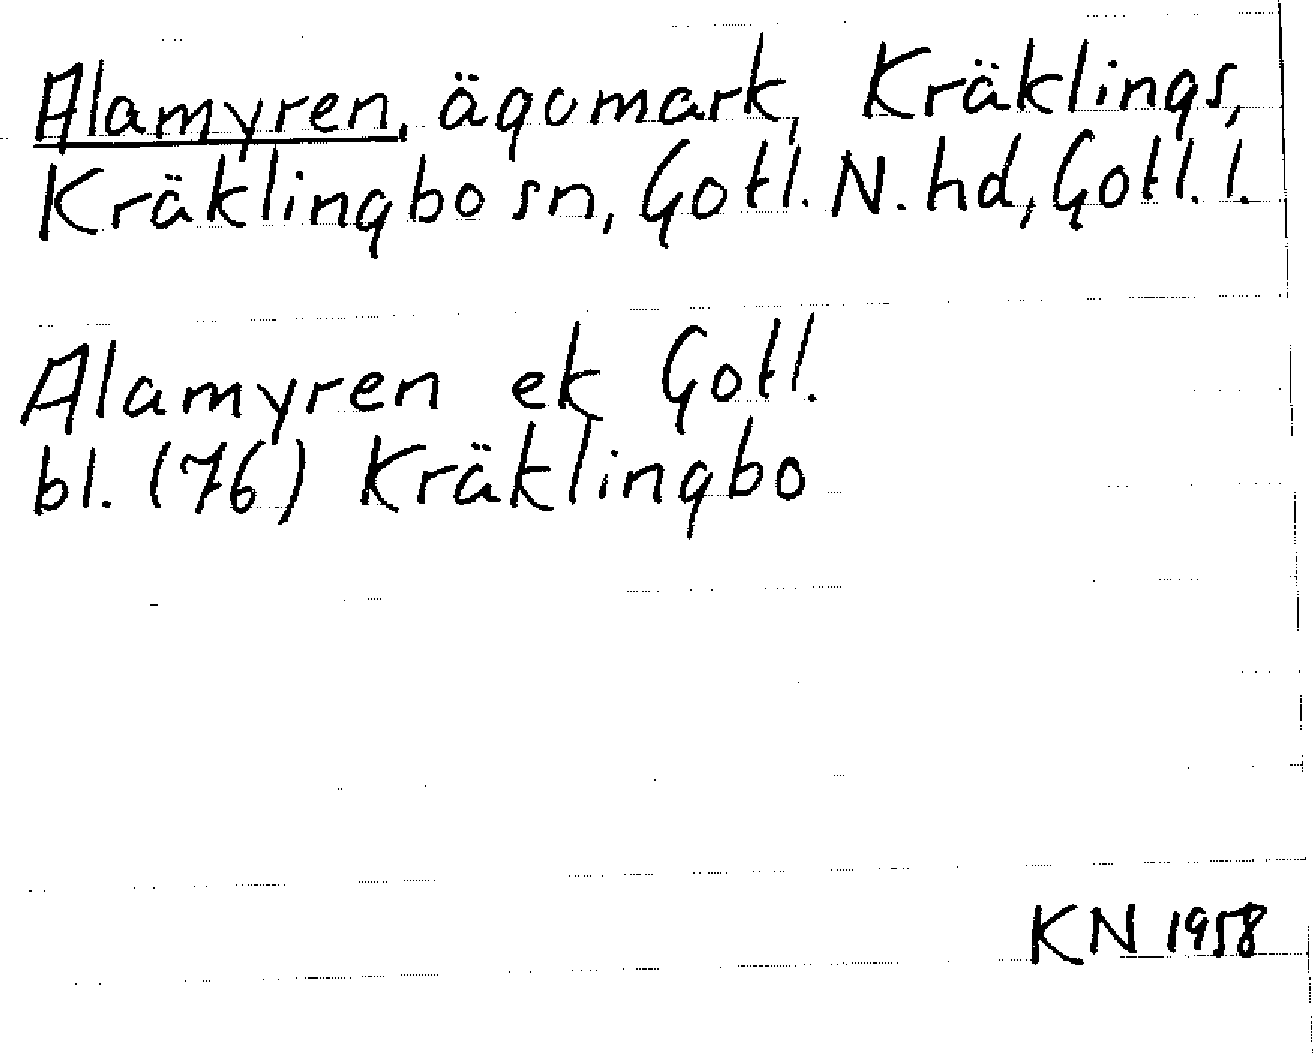 Alamyren, ägomark, Kräklings,
Kräklingbo sn, Gotl. N. hd, Gotl. l.
Alamyren ek Gotl.
bl. (76) Kräklingbo
KN 1958